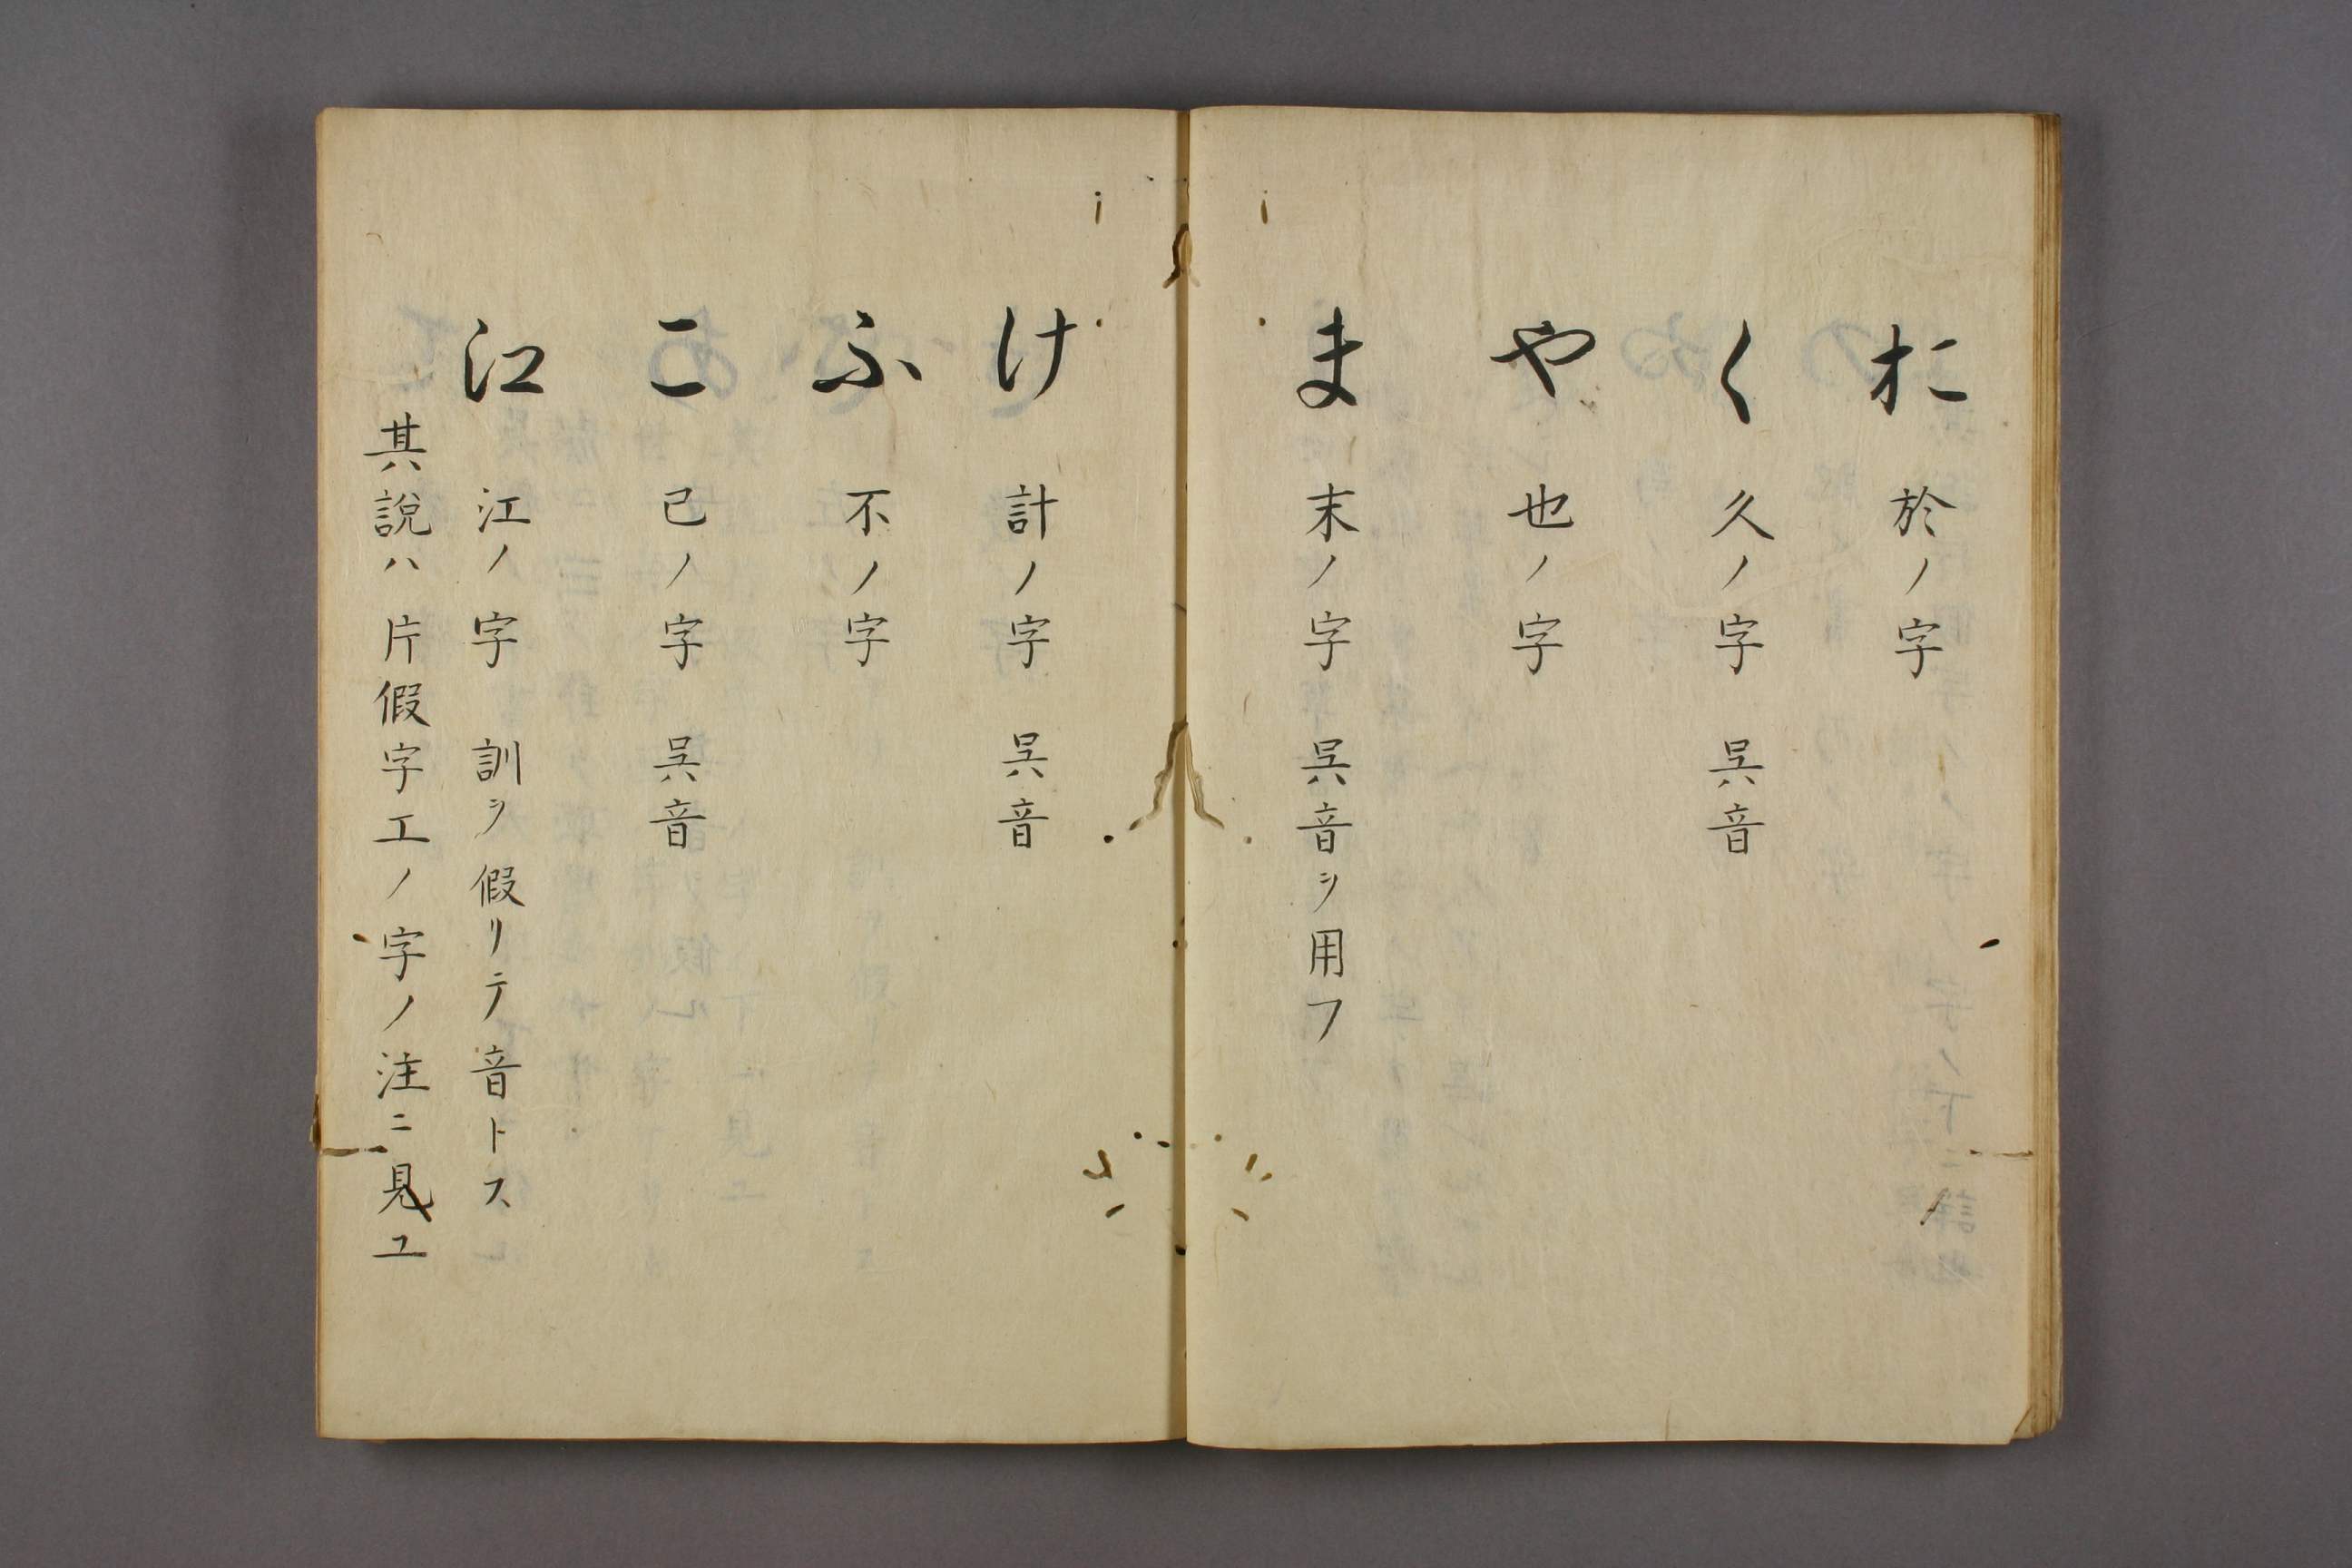 お 於ノ字
く 久ノ字 呉音
や 也ノ字
ま 末ノ字 呉音ヲ用フ
け 計ノ字 呉音
ふ 不ノ字
こ 己ノ字 呉音
江 江ノ字 訓ヲ假リテ音トス
其說ハ片假字エノ字ノ注ニ見ユ